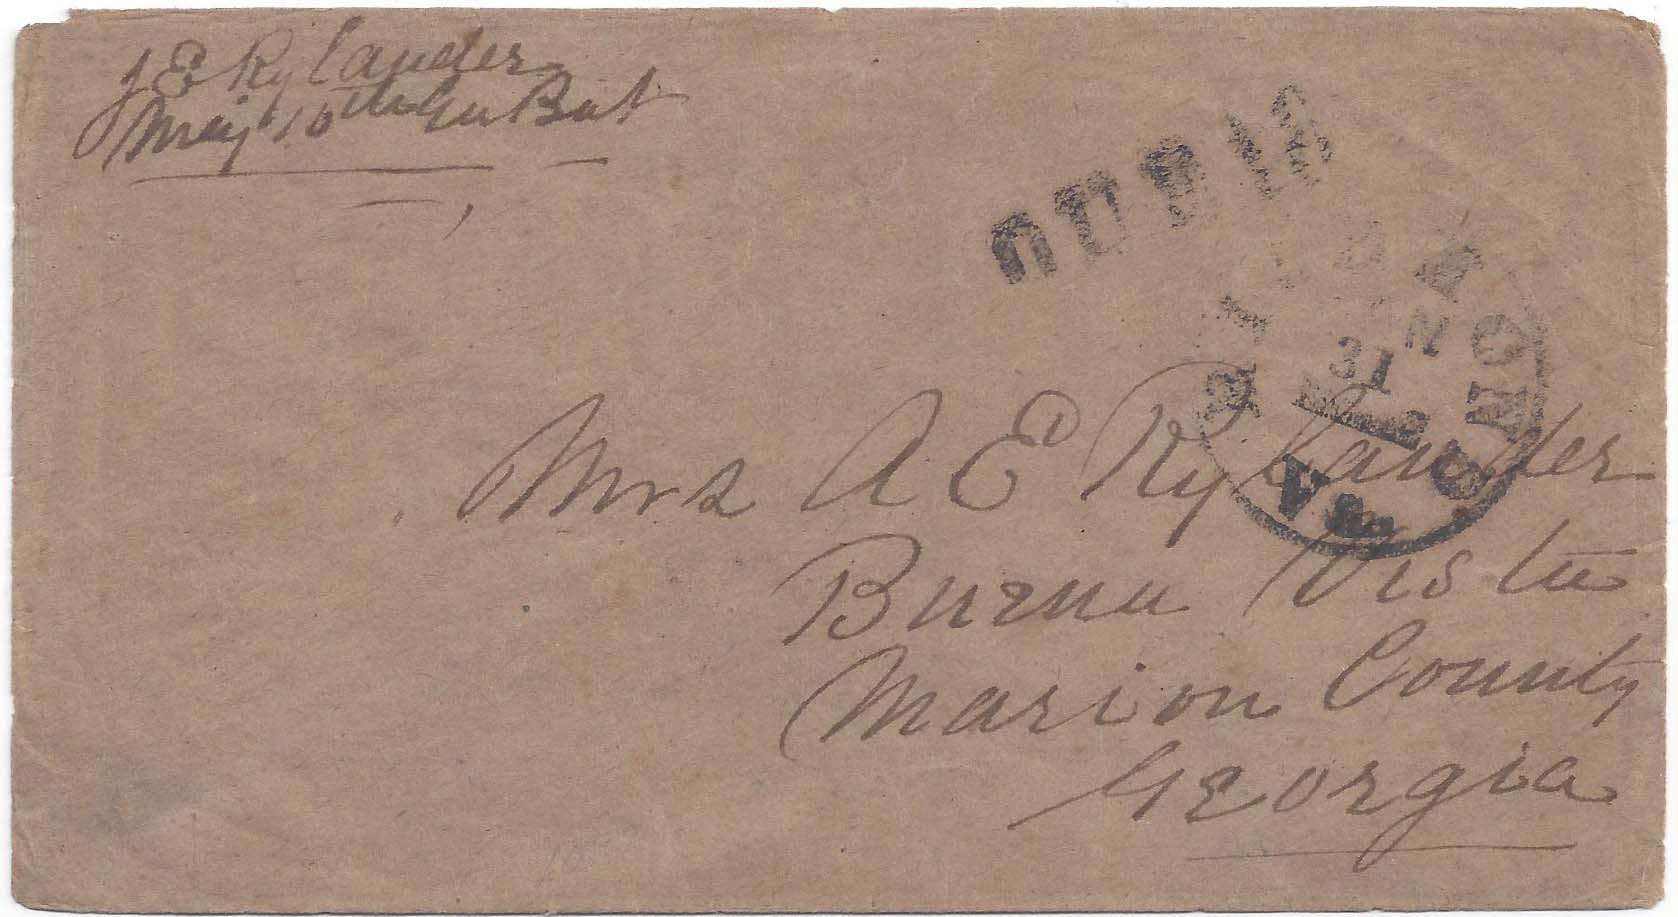 J E Rylander
Maj 10th Ga Bat
RICHMOND
31
Va.
Mrs A E Rylander
Buena Vista
Marion County
Georgia